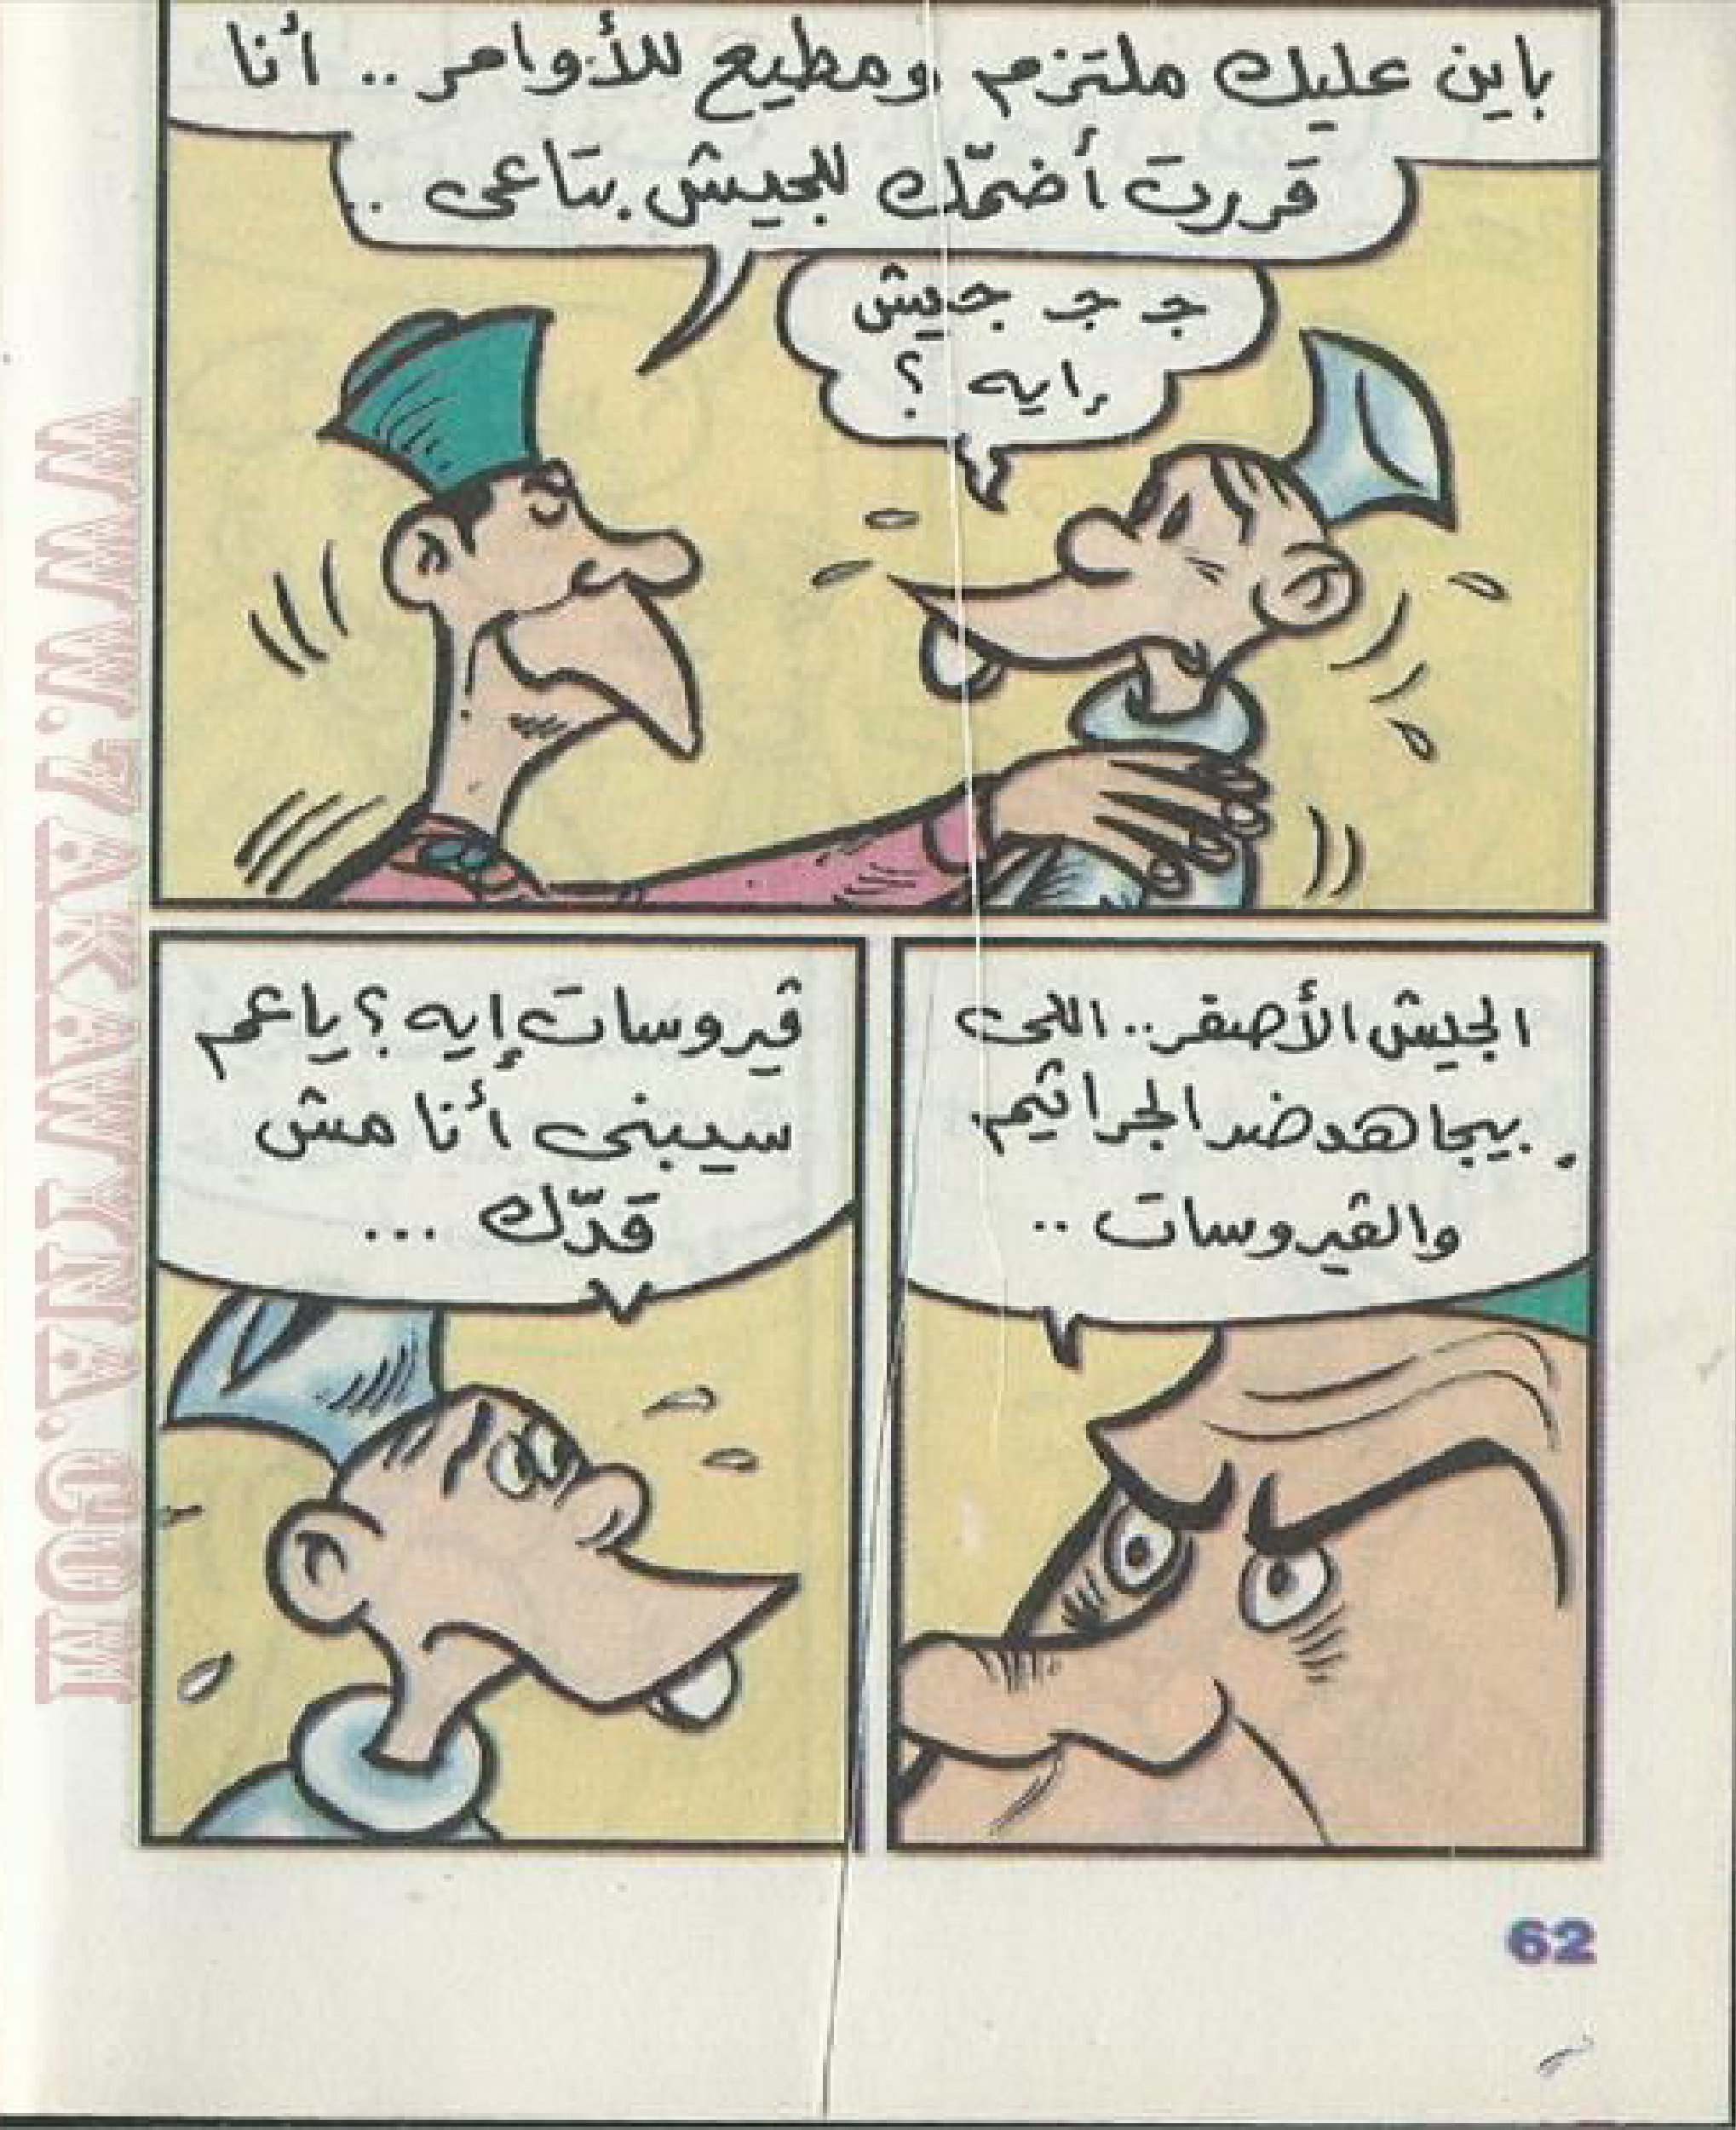 باين عليك ملتزم ومطيع للأوامر .. أنا
قررت أضمّك للجيش بتاعى ..
جـ جـ جيش
إيه ؟
الجيش الأصفر .. اللى
بيجاهد ضد الجراثيم
والڤيروسات ..
ڤيروسات إيه ؟ ياعم
سيبنى أنا مش
قدّك ...
62